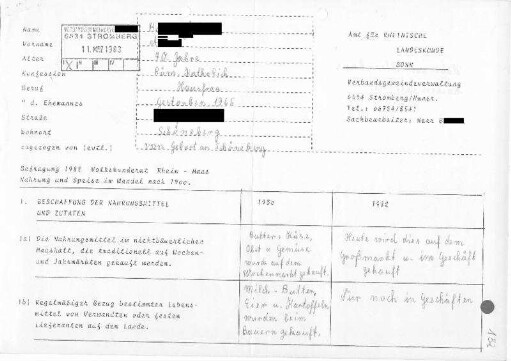 Name
Vorname
Alter 70 Jahre
Konfession Röm. Katholisch
Beruf Hausfrau
" d. Ehemannes Gestorben 1965
Straße
Wohnort Schöneberg
zugezogen von (evtl.) von Geburt an Schöneberg
6534 STROMBERG
11. MRZ 1983
Amt für RHEINISCHE
LANDESKUNDE
BONN
Verbandsgemeindeverwaltung
6534 Stromberg/Hunsr.
Tel.: 06724/
Sachbearbeiter: Herr
Befragung 1982 Volkskunderat Rhein - Maas
Nahrung und Speise im Wandel nach 1900.
1. BESCHAFFUNG DER NAHRUNGSMITTEL
UND ZUTATEN
1950
1982
1a) Die Nahrungsmittel im nichtbäuerlichen
Haushalt, die traditionell auf Wochen-
und Jahrmärkten gekauft werden.
Butter, Käse,
Obst u. Gemüse
wurde auf dem
Wochenmarkt gekauft.
Heute wird dies auf dem
Großmarkt u. im Geschäft
gekauft
1b) Regelmäßiger Bezug bestimmter Lebens-
mittel von Verwandten oder festen
Lieferanten auf dem Lande.
Milch - Butter,
Eier u. Kartoffeln
wurden beim
Bauern gekauft.
Nur noch in Geschäften